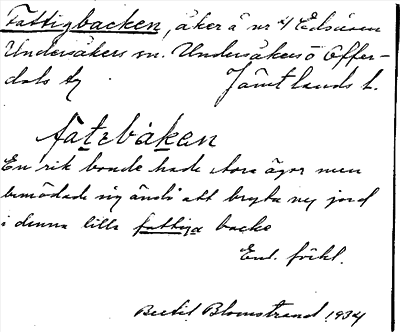 Fattigbacken, åker å nr 4 Edsåsen
Undersåkers sn. Undersåkers o Offer-
dals tg Jämtlands l.
fatebaken
En rik bonde hade stora ägor men
bemödade sig ändå att bryta ny jord
i denna lilla fattiga backe
Enl. förkl.
Bertil Blomstrand 1934